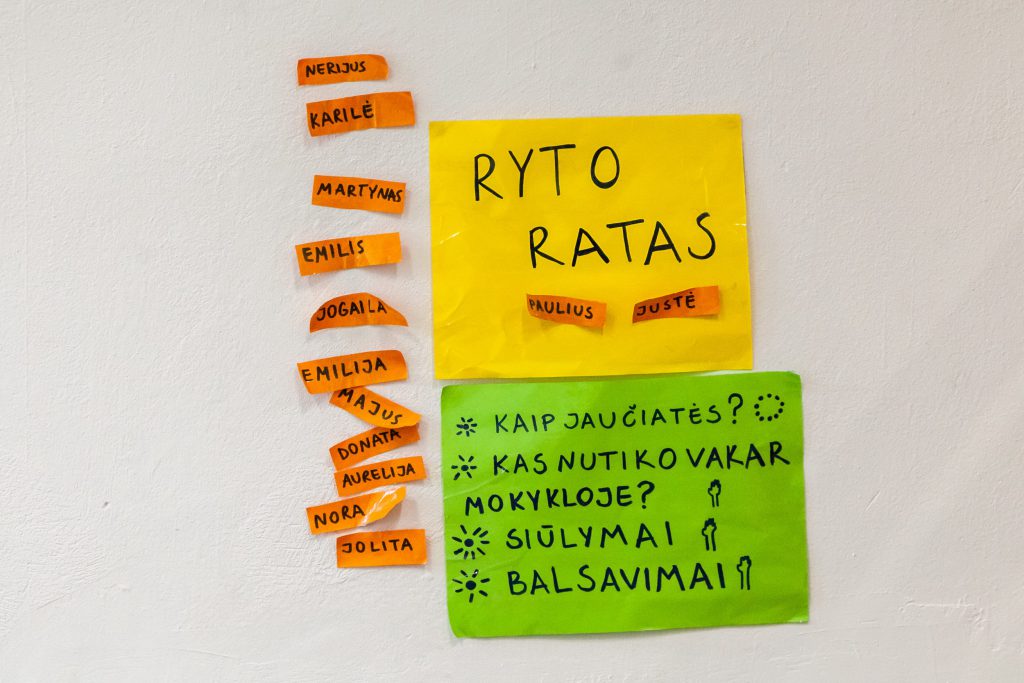 NERIJUS
KARILĖ
MARTYNAS
EMILIS
JOGAILA
EMILIJA
MAJUS
DONATA
AURELIJA
NORA
JOLITA
RYTO
RATAS
PAULIUS JUSTĖ
KAIP JAUČIATĖS?
KAS NUTIKO VAKAR
MOKYKLOJE?
SIŪLYMAI
BALSAVIMAI